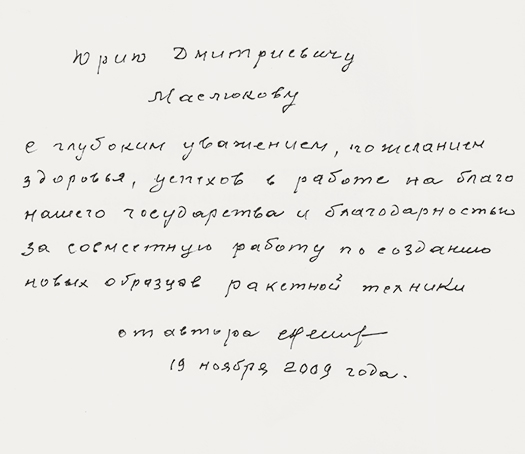 Юрию Дмитриевичу
Маслюкову
с глубоким уважением, пожеланием
здоровья, успехов в работе на благо
нашего государства и благодарностью
за совместную работу по созданию
новых образцов ракетной техники
от автора
19 ноября 2009 года.